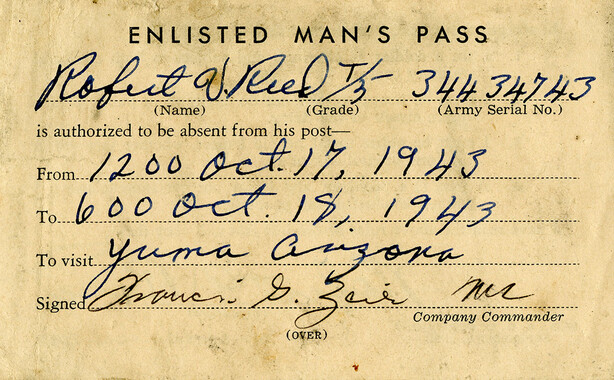 ENLISTED MAN'S PASS
Robert V. Reed T/5 34434743
(Name) (Grade) (Army Serial No.)
is authorized to be absent from his post—
From 1200 Oct. 17, 1943
To 600 Oct. 18, 1943
To visit Yuma Arizona
Signed Francis G.
Company Commander
(OVER)